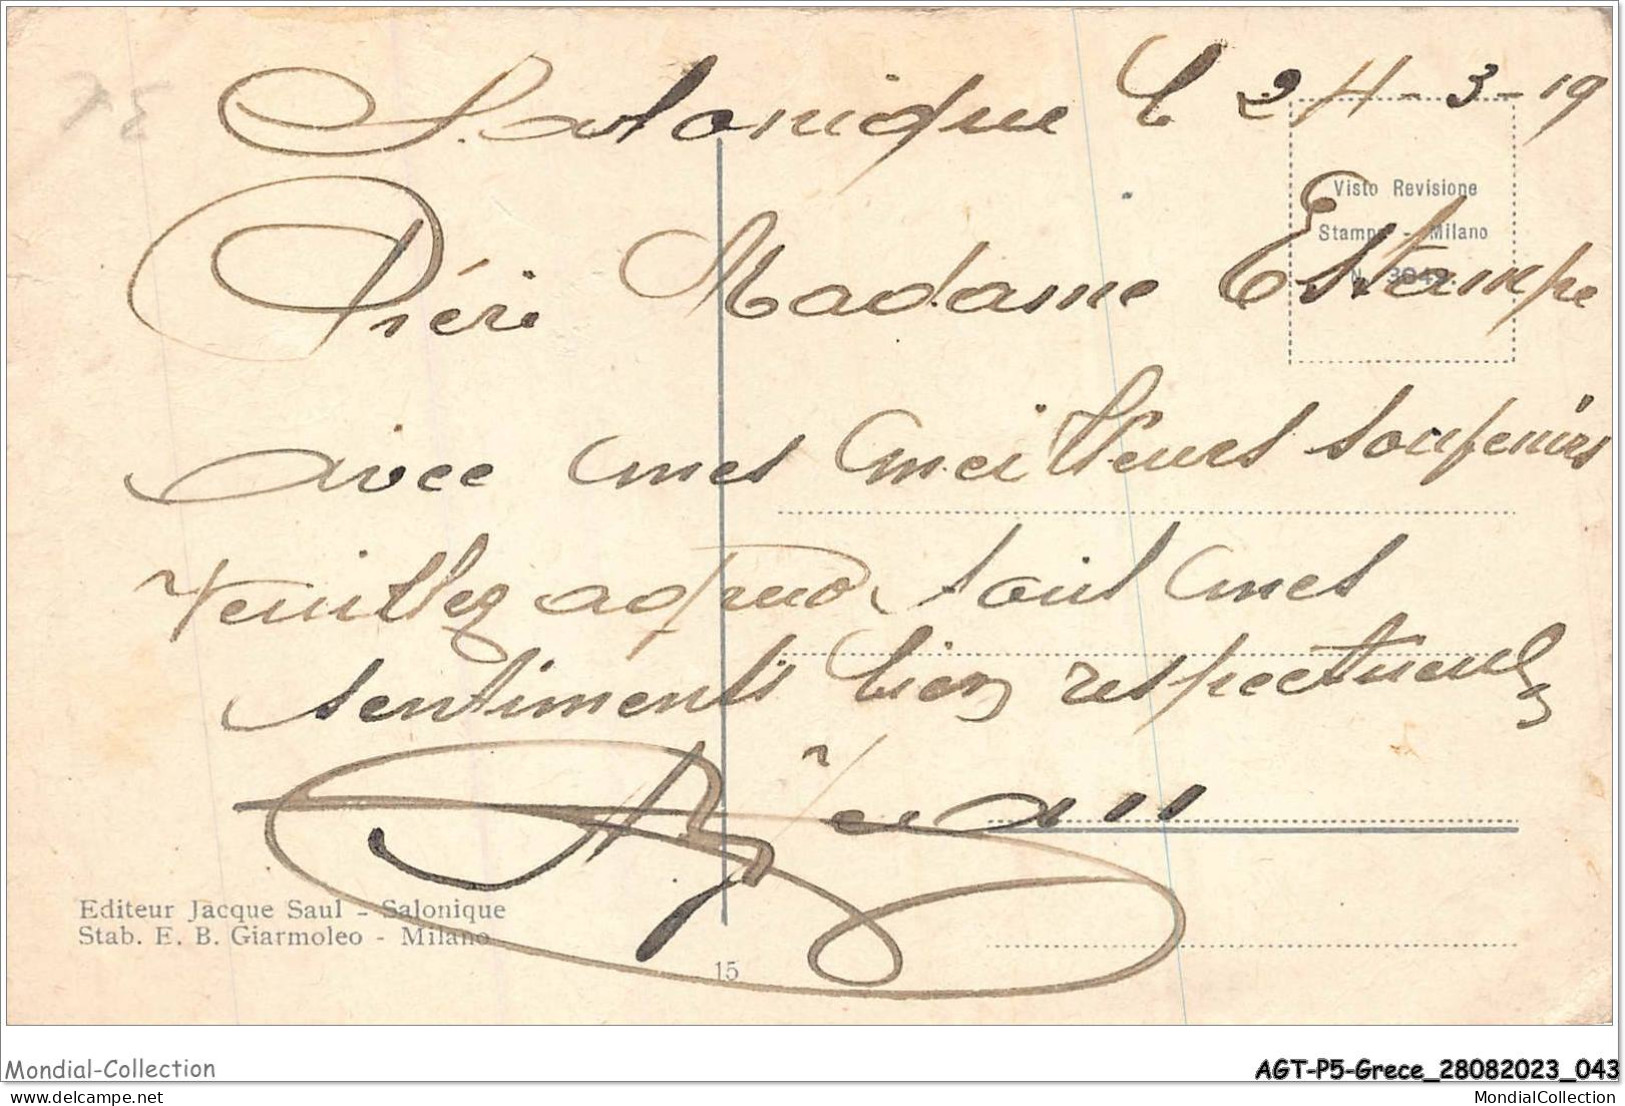 Salonique le 24-3-19
Visto Revisione
Stampa - Milano
N. 3942
Madame Estampe
avec mes meilleurs soufenirs
veuillez mes
sentiments bien respectueux
Editeur Jacque Saul - Salonique
Stab. E. B. Giarmoleo - Milano
15
Mondial-Collection
AGT-P5-Grece_28082023_043
delcampe.net
MondialCollection